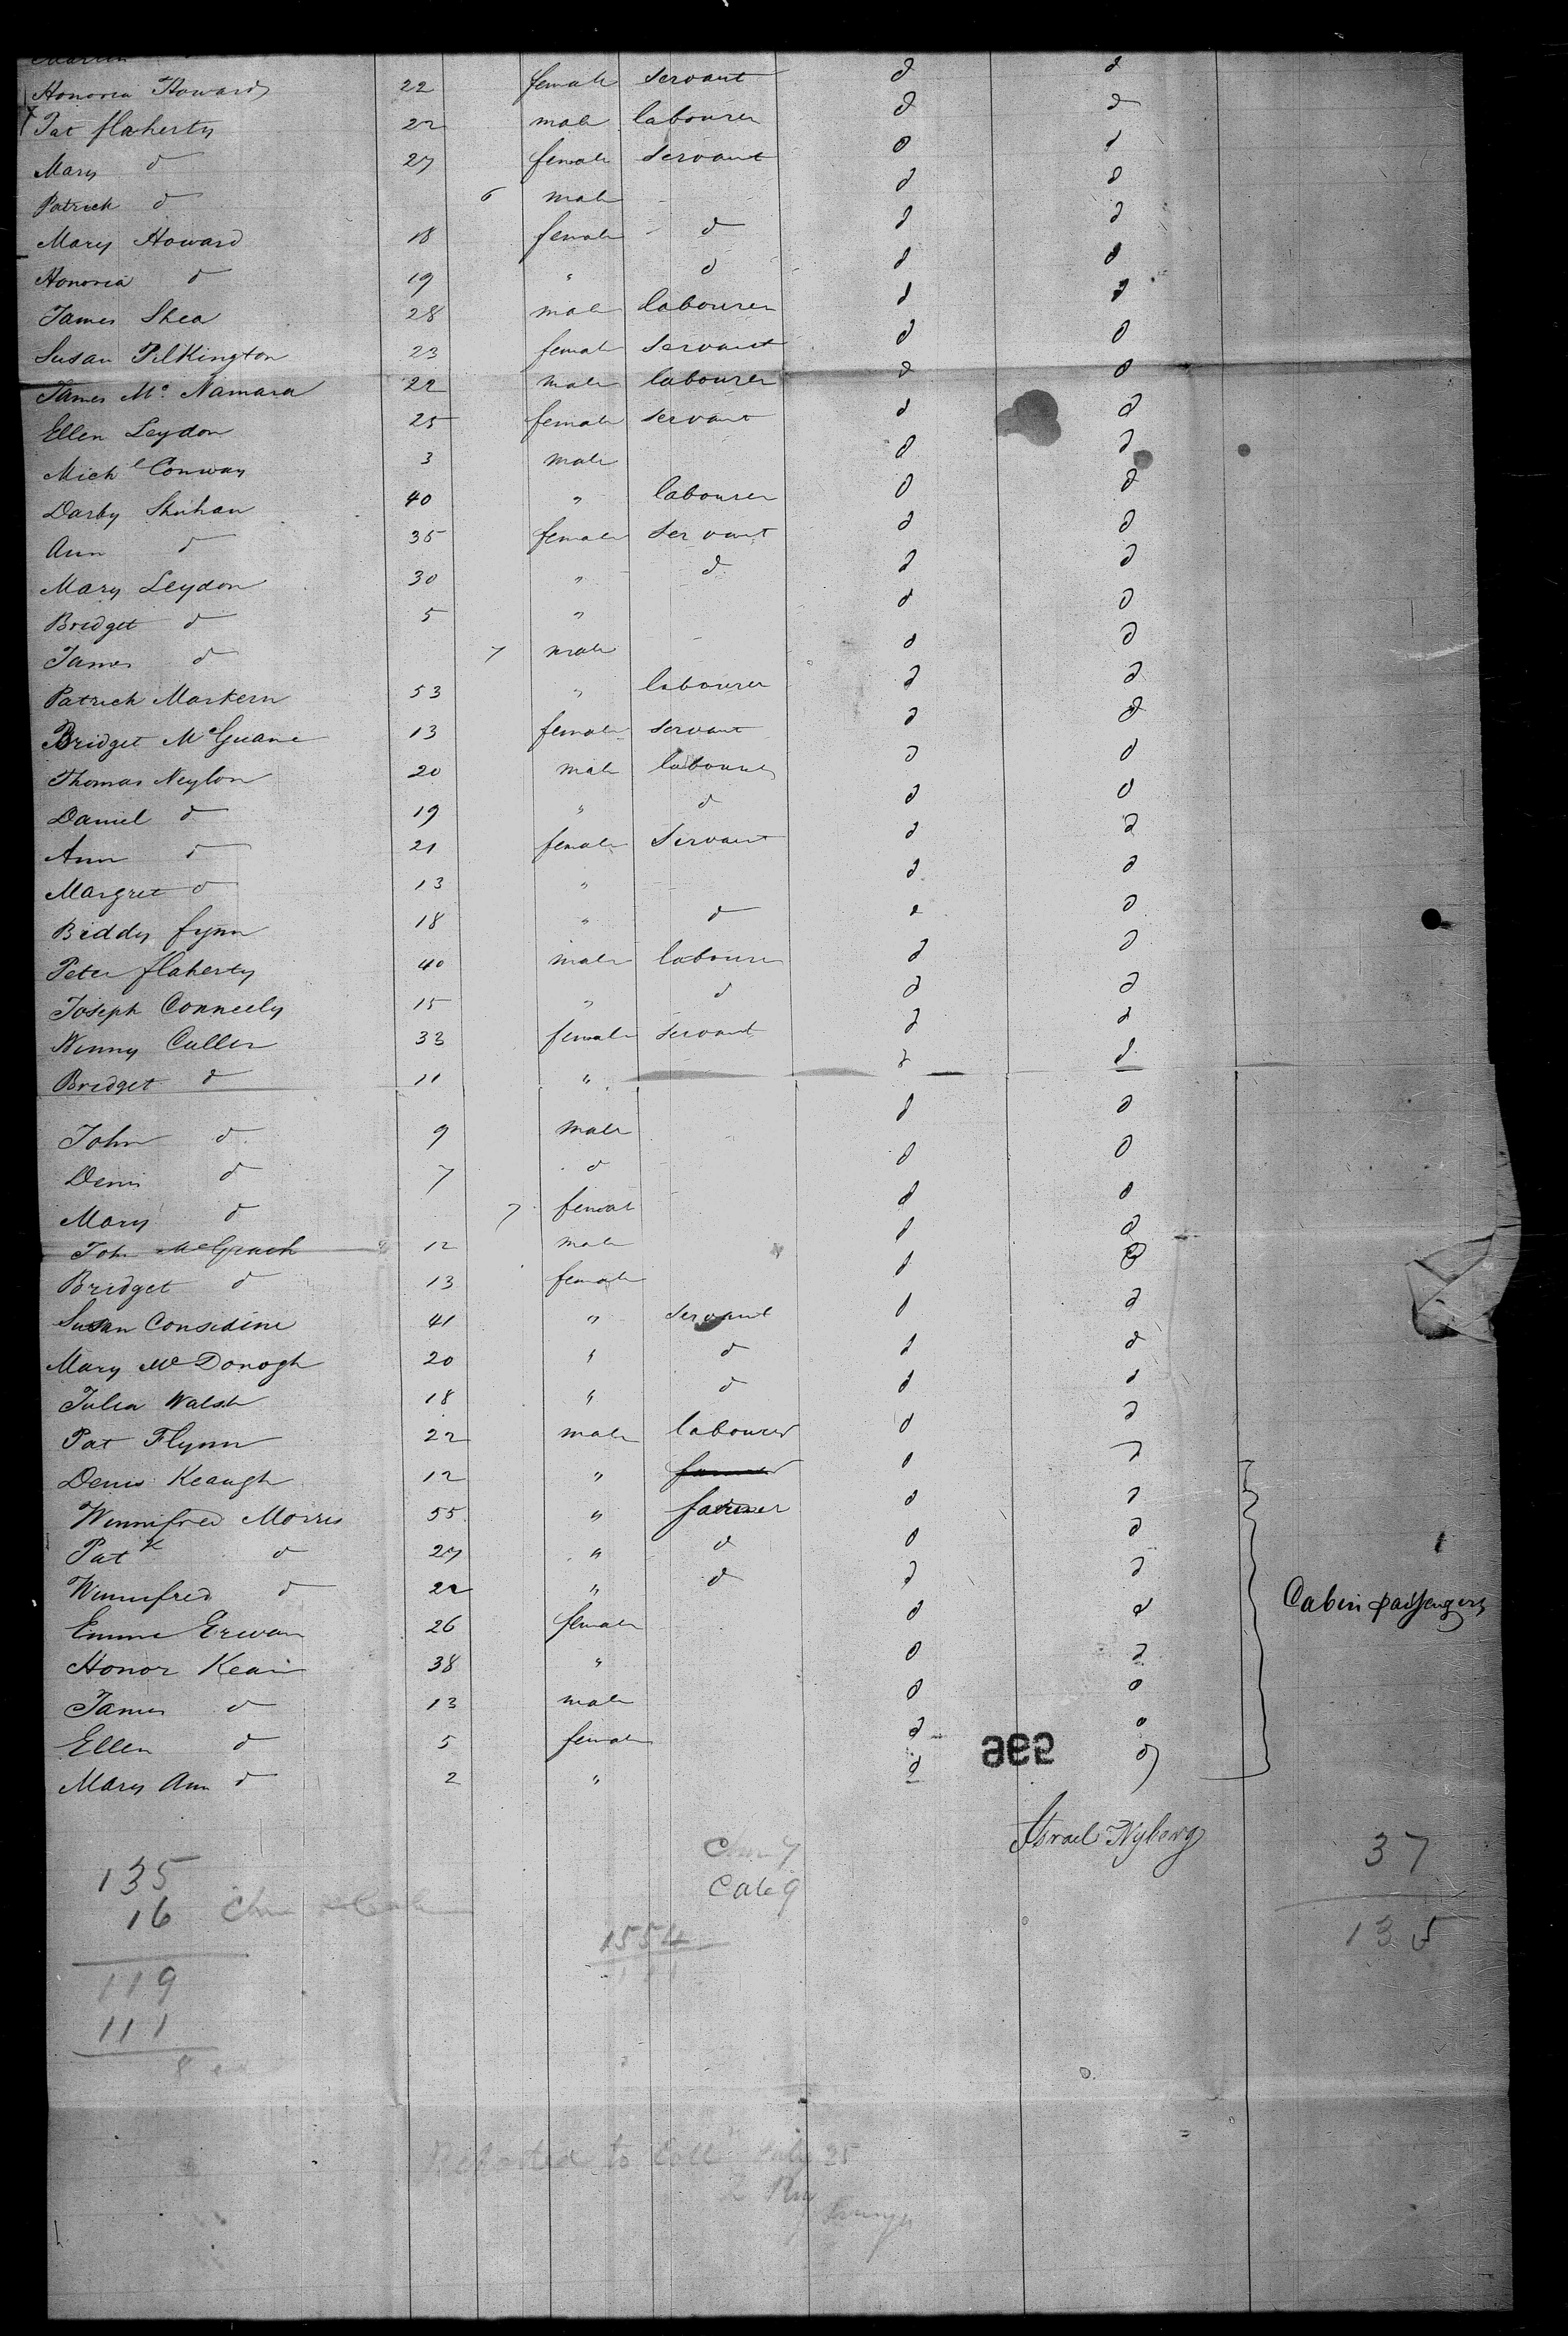 Honoria Howard 22 female servant d d
Pat flaherty 22 male labourer d d
Mary d 27 female servant d d
Patrick d 6 male - d d
Mary Howard 18 female d d d
Honoria d 19 " d d d
James Shea 28 male labourer d d
Susan Pilkington 23 female servant d d
James Mc Namara 22 male labourer d d
Ellen Leydon 25 female servant d d
Michl Conway 3 male d d
Darby Shuhan 40 " labourer d d
Ann d 35 female servant d d
Mary Leydon 30 " d d d
Bridget d 5 " d d
James d 7 male - d d
Patrick Markern 53 " labourer d d
Bridget McGuane 13 female servant d d
Thomas Neylon 20 male labourer d d
Daniel d 19 " d d d
Ann d 21 female Servant d d
Margret d 13 " d d
Biddy fynn 18 " d d d
Peter flaherty 40 male labourer d d
Joseph Conneely 15 " d d d
Winny Cullen 33 female servant d d
Bridget d 11 " d d
John d 9 male d d
Denis d 7 d d d
Mary d 7 female d d
John McGrath 12 male d d
Bridget d 13 female d d
Susan Considine 41 " servant d d
Mary Mc Donogh 20 " d d d
Julia Walsh 18 " d d d
Pat Flynn 22 male labourer d d
Denis Keaugh 12 " farmer d d
Winnifred Morris 55 " farmer d d
Patk d 27 " d d d
Winnifred d 22 " d d d
Cabin passengers
Emma Erwan 26 female d d
Honor Keain 38 " d d
James d 13 male d d
Ellen d 5 female d d
996
Mary Ann d 2 " d d
Israel Nyberg
37
135
135
16
119
111
8
7
Cab 9
1554
111
Reported to Coll July 25
2 Pm